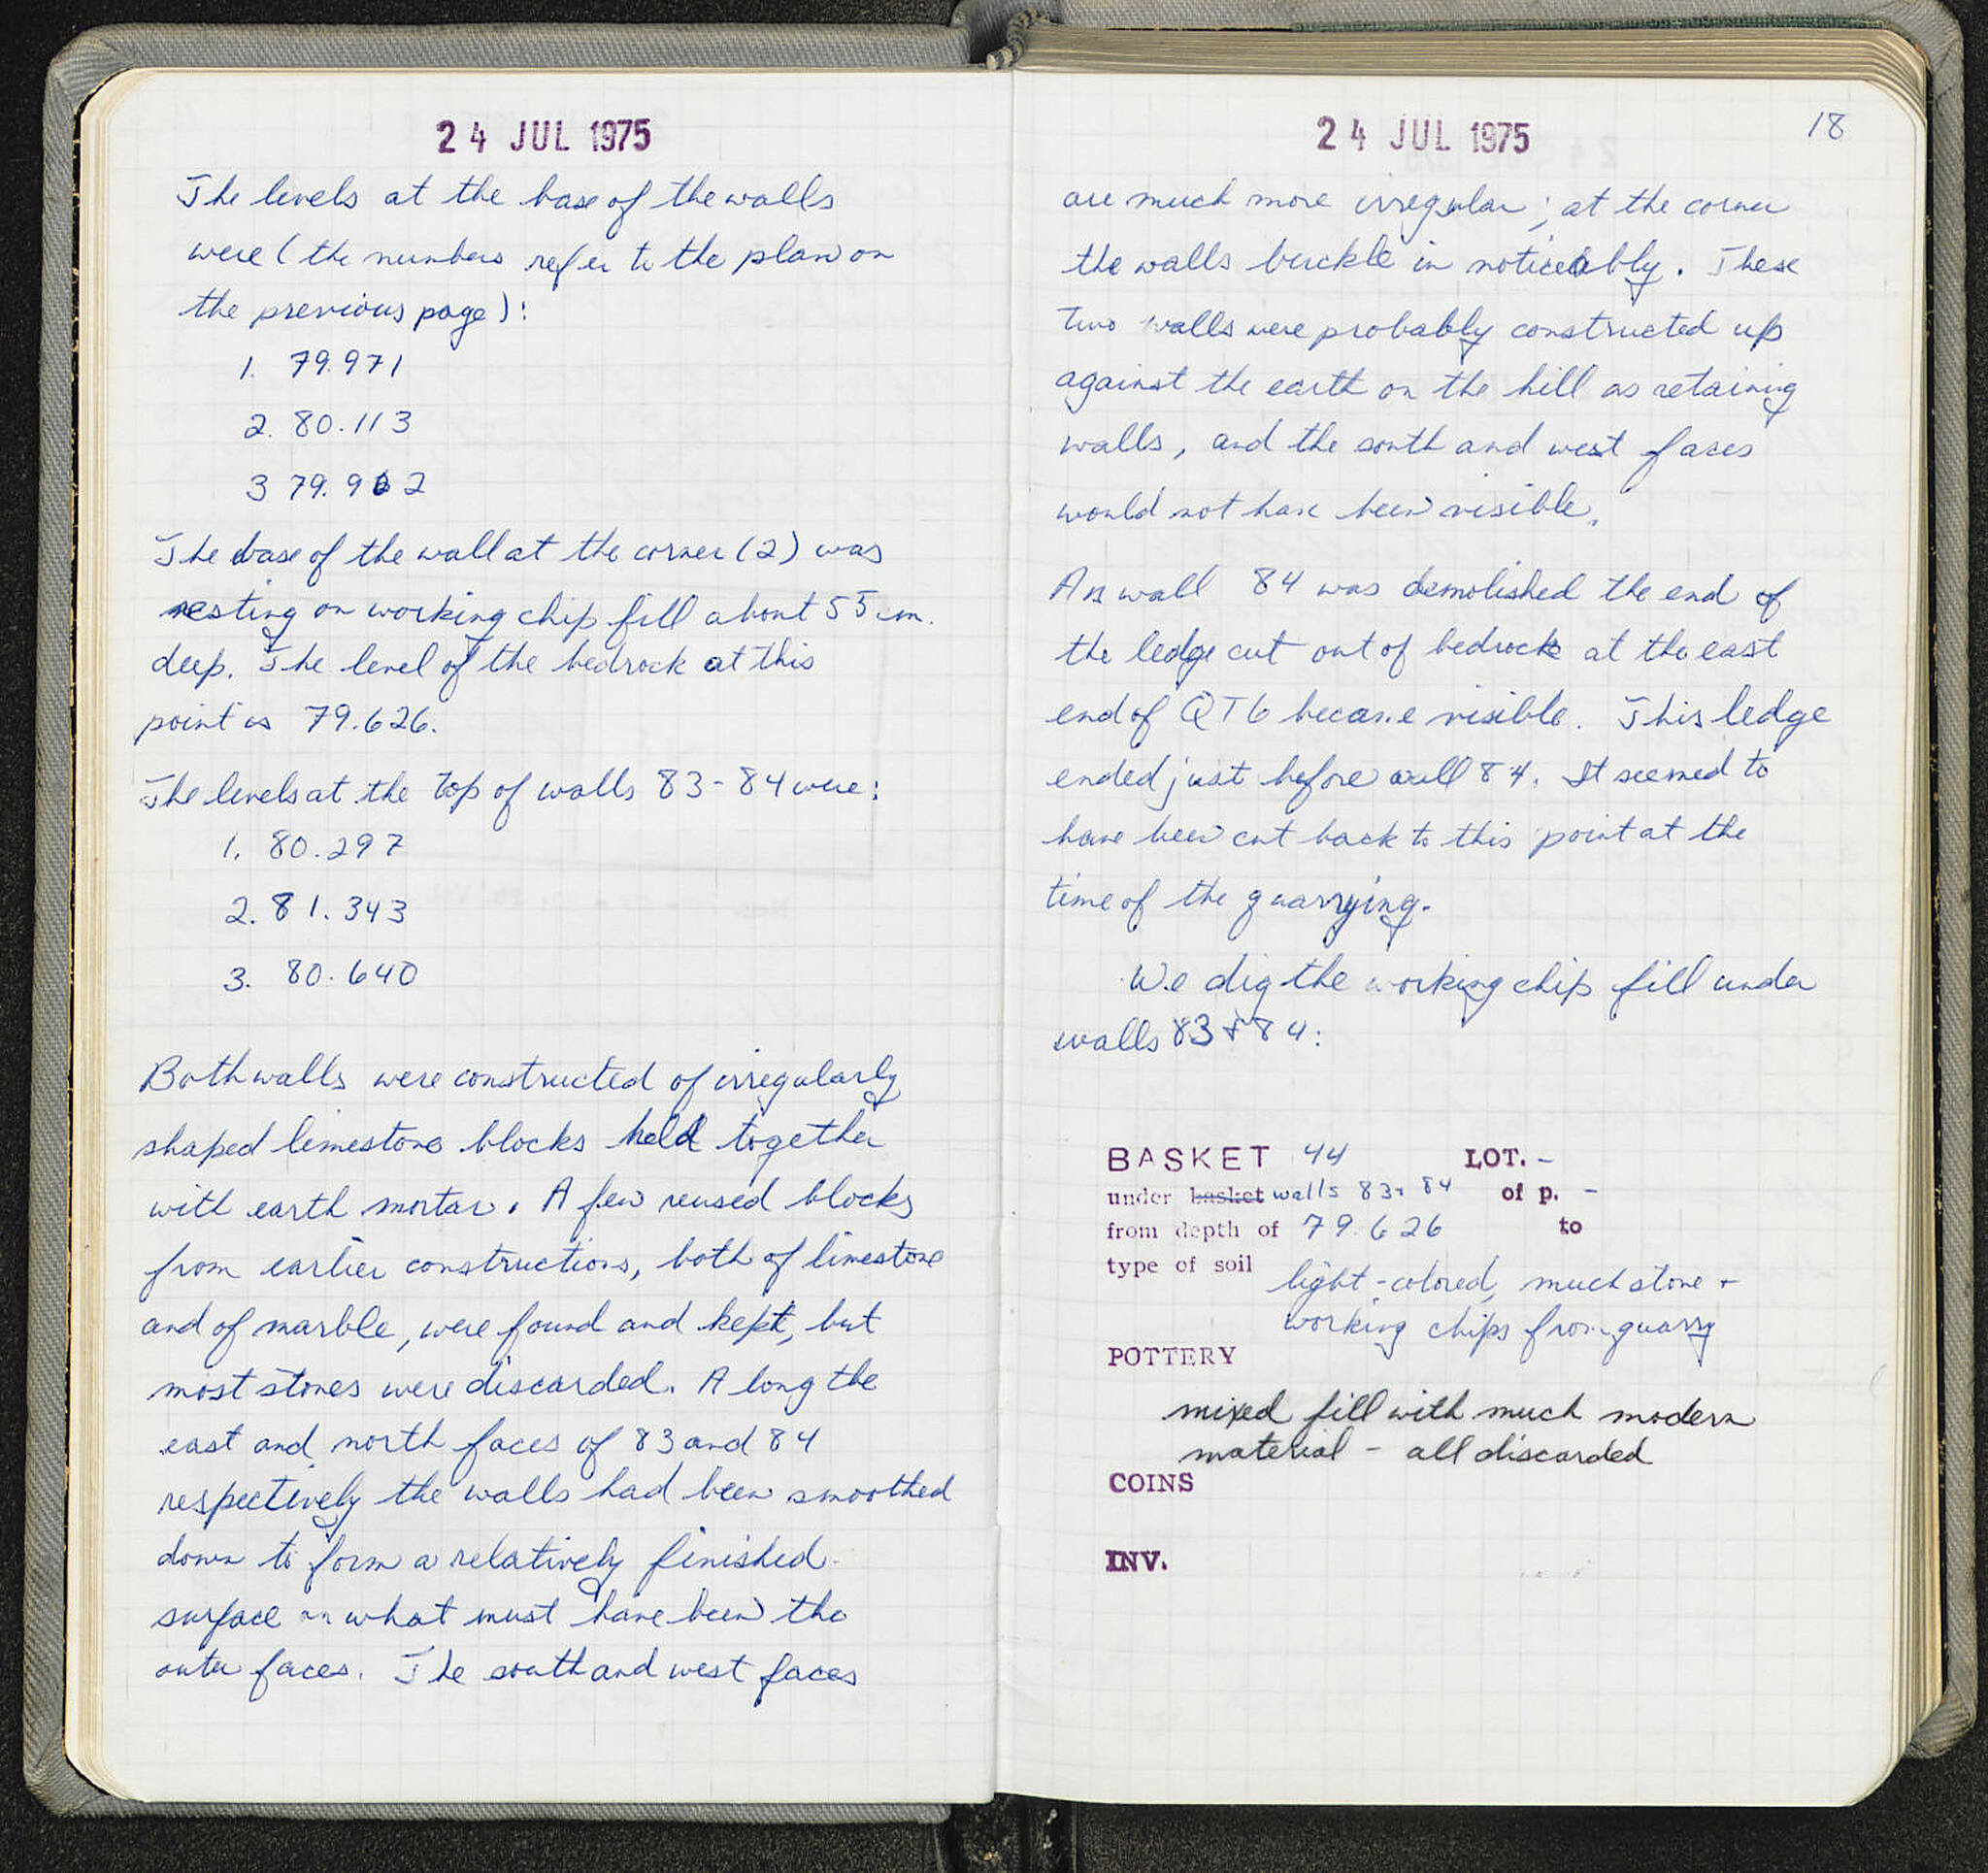 24 JUL 1975
The levels at the base of the walls
were (the numbers refer to the plan on
the previous page):
1. 79.971
2. 80.113
3 79.962
The base of the wall at the corner (2) was
resting on working chip fill about 55 cm.
deep. The level of the bedrock at this
point is 79.626.
The levels at the top of walls 83-84 were:
1. 80.297
2. 81.343
3. 80.640
Both walls were constructed of irregularly
shaped limestone blocks held together
with earth mortar. A few reused blocks
from earlier constructions, both of limestone
and of marble, were found and kept, but
most stones were discarded. Along the
east and north faces of 83 and 84
respectively the walls had been smoothed
down to form a relatively finished
surface on what must have been the
outer faces. The south and west faces
24 JUL 1975
18
are much more irregular; at the corner
the walls buckle in noticeably. These
two walls were probably constructed up
against the earth on the hill as retaining
walls, and the south and west faces
would not have been visible.
As wall 84 was demolished the end of
the ledge cut out of bedrock at the east
end of QT6 became visible. This ledge
ended just before wall 84. It seemed to
have been cut back to this point at the
time of the quarrying.
We dig the working chip fill under
walls 83 + 84:
BASKET 44 LOT. -
under basket walls 83+84 of p. -
from depth of 79.626 to
type of soil light-colored, much stone +
working chips from quarry
POTTERY
mixed fill with much modern
material - all discarded
COINS
INV.